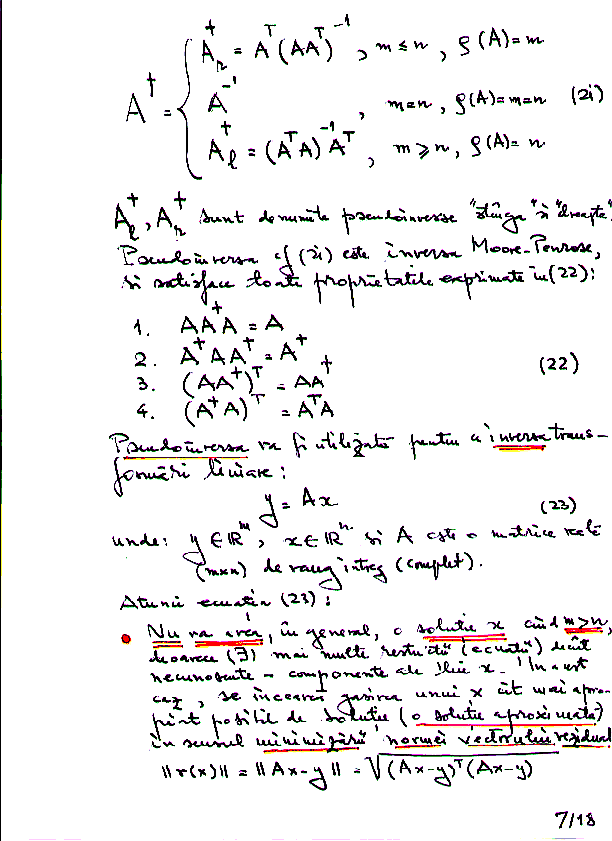 A† = { A_r† = Aᵀ(AAᵀ)⁻¹, m ≤ n, ρ(A)=m
A⁻¹, m=n, ρ(A)=m=n (21)
A_ℓ† = (AᵀA)⁻¹Aᵀ, m ≥ n, ρ(A)= n
A_ℓ†, A_r† sunt denumite pseudoinverse "stânga" și "dreapta".
Pseudoinversa cf (21) este inversa Moore-Penrose,
și satisface toate proprietățile exprimate în (22):
1. AA†A = A
2. A†AA† = A†
3. (AA†)ᵀ = AA† (22)
4. (A†A)ᵀ = AᵀA
Pseudoinversa va fi utilizată pentru a inversa trans-
formări liniare:
y = Ax (23)
unde: y ∈ ℝᵐ, x ∈ ℝⁿ și A este o matrice reală
(m×n) de rang întreg (complet).
Atunci ecuația (23):
• Nu va avea, în general, o soluție x când m>n,
deoarece (∃) mai multe restricții (ecuații) decât
necunoscute - componente ale lui x. In acest
caz, se încearcă găsirea unui x cât mai apro-
piat posibil de soluție (o soluție aproximată)
în sensul minimizării normei vectorului rezidual
‖r(x)‖ = ‖Ax-y‖ = √(Ax-y)ᵀ(Ax-y)
7/18